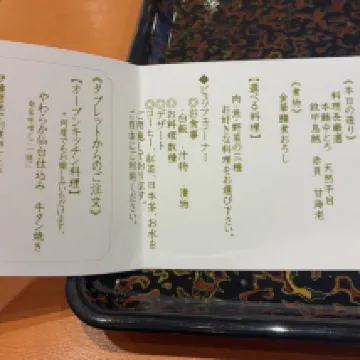 《本日のお造り》
料理長厳選
本鮪中とろ 天然平目
赤貝 甘海老
《煮物》
金華鯖煮おろし
【選べる料理】
肉・魚・野菜の三種
お好きな料理をお選び下さい。
◆ビュッフェコーナー
◎お食事
白飯 汁物 漬物
◎お料理数種
◎デザート
◎コーヒー、紅茶、日本茶、お水を
ご用意しております。
ご自由にご利用ください。
《タブレットからのご注文》
【オープンキッチン料理】
＊何度でもお愉しみいただけます。
やわらか仙台仕込み 牛タン焼き